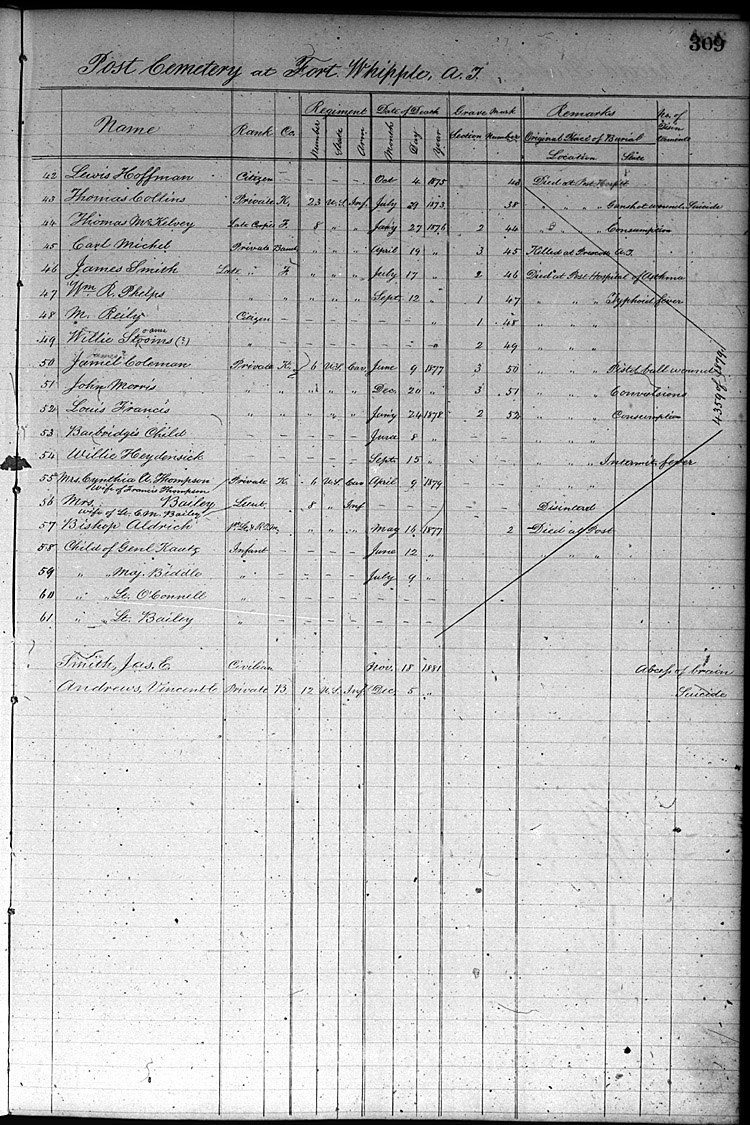 309
Post Cemetery at Fort Whipple, A.T.
Name Rank Co. Regiment Date of Death Grave Mark Remarks No. of Disinterments
Number State Arm Month Day Year Section Number Original Place of Burial
Location State
42 Lewis Hoffman Citizen – – – – Oct 4 1875 43 Died at Post Hospl
43 Thomas Collins Private K. 23 U.S. Inf. July 29 1873 38 " " " Gunshot wound, Suicide
44 Thomas McKelvey Late Corpl F. 8 " " Jany 27 1876 2 44 " " " Consumption
45 Carl Michel Private Band " " " April 19 " 3 45 Killed at Prescott A.T.
46 James Smith Late " F. " " " July 17 " 2 46 Died at Post Hospital of Asthma
47 Wm. R. Phelps " " " " " Sept. 12 " 1 47 " " " Typhoid fever
48 M. Reily Citizen – – – – – – " 1 48
49 Willie Stooms (?) " – – – – – – " 2 49 " " "
50 James Coleman Private K. 6 U.S. Cav. June 9 1877 3 50 " " " Pistol ball wound
51 John Morris " " " " " Dec. 20 " 3 51 " " " Convulsions
52 Louis Francis " " " " " Jany 24 1878 2 52 " " " Consumption
53 Baebridge's Child – – – – – June 8 " " " "
54 Willie Heydensick – – – – – Sept. 15 " " " " Intermit. fever
55 Mrs. Cynthia A. Thompson Private K. 6 U.S. Cav April 9 1879 " " "
wife of Francis Thompson
56 Mrs. Bailey Lieut. – 8 " Inf – – – Disinterd
wife of Lt. E.M. Bailey
57 Bishop Aldrich " " " May 16 1877 2 Died at Post
58 Child of Genl Kautz Infant – – – – June 12 " " " "
59 " " Maj. Biddle " – – – – July 9 "
60 " " Lt. O'Connell " – – – – – – –
61 " " Lt. Bailey " – – – – – – –
4359 of 1879
Smith, Jas. E. Civilian Nov. 18 1881 Abcess of brain
Andrews, Vincent C Private B. 12 U.S. Inf. Dec. 5 " Suicide